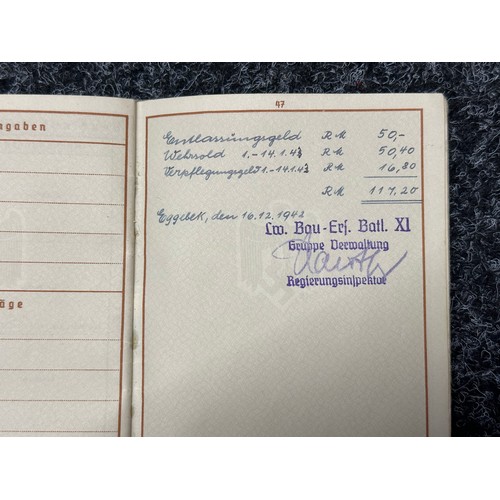 ngaben
äge
47
Entlassungsgeld RM 50,-
Wehrsold 1.-14.1.43 RM 50,40
Verpflegungsgeld 1.-14.1.43 RM 16,80
RM 117,20
Eggebek, den 16.12.1942
Lw. Bau-Ers. Batl. XI
Gruppe Verwaltung
Regierungsinspektor